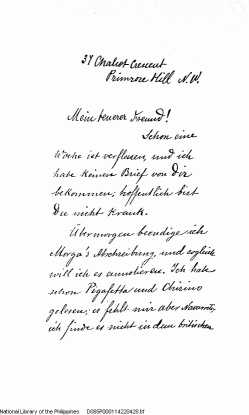 37 Chalcot Crescent
Primrose Hill N.W.
Mein teuerer Freund!
Schon eine
Woche ist verflossen, und ich
habe keinen Brief von dir
bekommen; hoffentlich bist
Du nicht krank.
Übermorgen beendige ich
Morga's Abschreibung, und sogleich
will ich es annotieren. Ich habe
schon Pigafetta und Chirino
gelesen; es fehlt mir aber
ich finde es nicht in dem britischen
National Library of the Philippines D085P000114220429.tif